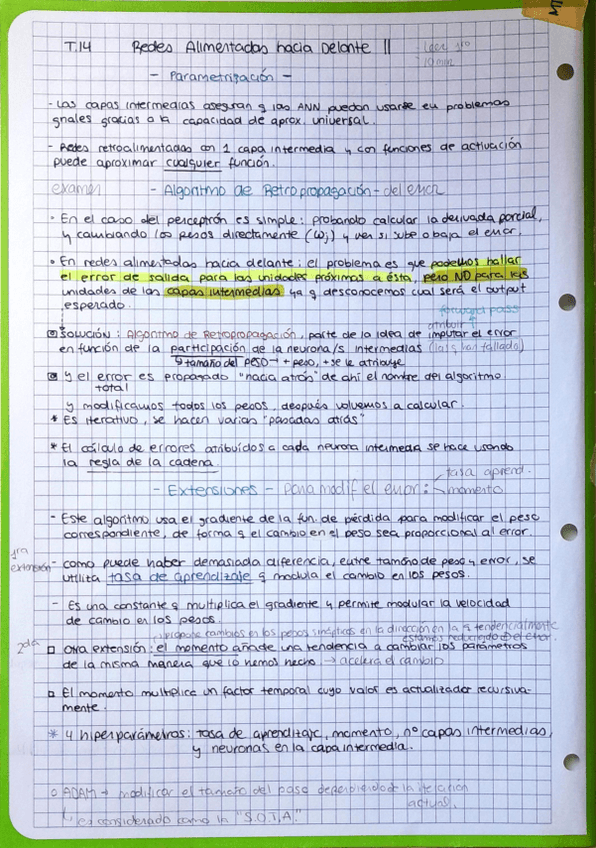 T.14 Redes Alimentadas hacia Delante II
leer 1ro
10 min
- Parametrización -
- Las capas intermedias aseguran q las ANN puedan usarse en problemas
gnales gracias a la capacidad de aprox. universal.
- Redes retroalimentadas con 1 capa intermedia y con funciones de activación
puede aproximar cualquier función.
examen - Algoritmo de Retropropagación - del error
· En el caso del perceptrón es simple: probando calcular la derivada parcial,
y cambiando los pesos directamente (wj) y ver si sube o baja el error.
· En redes alimentadas hacia delante: el problema es que podemos hallar
el error de salida para las unidades próximas a ésta, pero NO para las
unidades de las capas intermedias ya q desconocemos cual será el output
esperado.
forward pass
atribuir
SOLUCIÓN: Algoritmo de Retropropagación, parte de la idea de imputar el error
en función de la participación de la neurona/s intermedias (las q han fallado)
tamaño del PESO → + peso, + se le atribuye
y el error es propagado "hacia atrás" de ahí el nombre del algoritmo.
total
y modificamos todos los pesos, después volvemos a calcular.
* Es iterativo, se hacen varias "pasadas atrás"
* El cálculo de errores atribuidos a cada neurona intermedia se hace usando
la regla de la cadena.
tasa aprend.
- Extensiones - para modif el error:
momento
- Este algoritmo usa el gradiente de la fun. de pérdida para modificar el peso
correspondiente, de forma q el cambio en el peso sea proporcional al error.
1ra
extensión
- como puede haber demasiada diferencia, entre tamaño de peso y error, se
utiliza tasa de aprendizaje q modula el cambio en los pesos.
- Es una constante q multiplica el gradiente y permite modular la velocidad
de cambio en los pesos.
propone cambios en los pesos sinápticos en la dirección en la q tendencialmente
estamos reduciendo el error.
2da
□ Otra extensión: el momento añade una tendencia a cambiar los parámetros
de la misma manera que lo hemos hecho → acelera el cambio
□ El momento multiplica un factor temporal cuyo valor es actualizador recursiva-
mente.
* 4 hiperparámetros: tasa de aprendizaje, momento, nº capas intermedias,
y neuronas en la capa intermedia.
○ ADAM → modificar el tamaño del paso dependiendo de la iteración
actual.
es considerado como la "S.O.T.A."